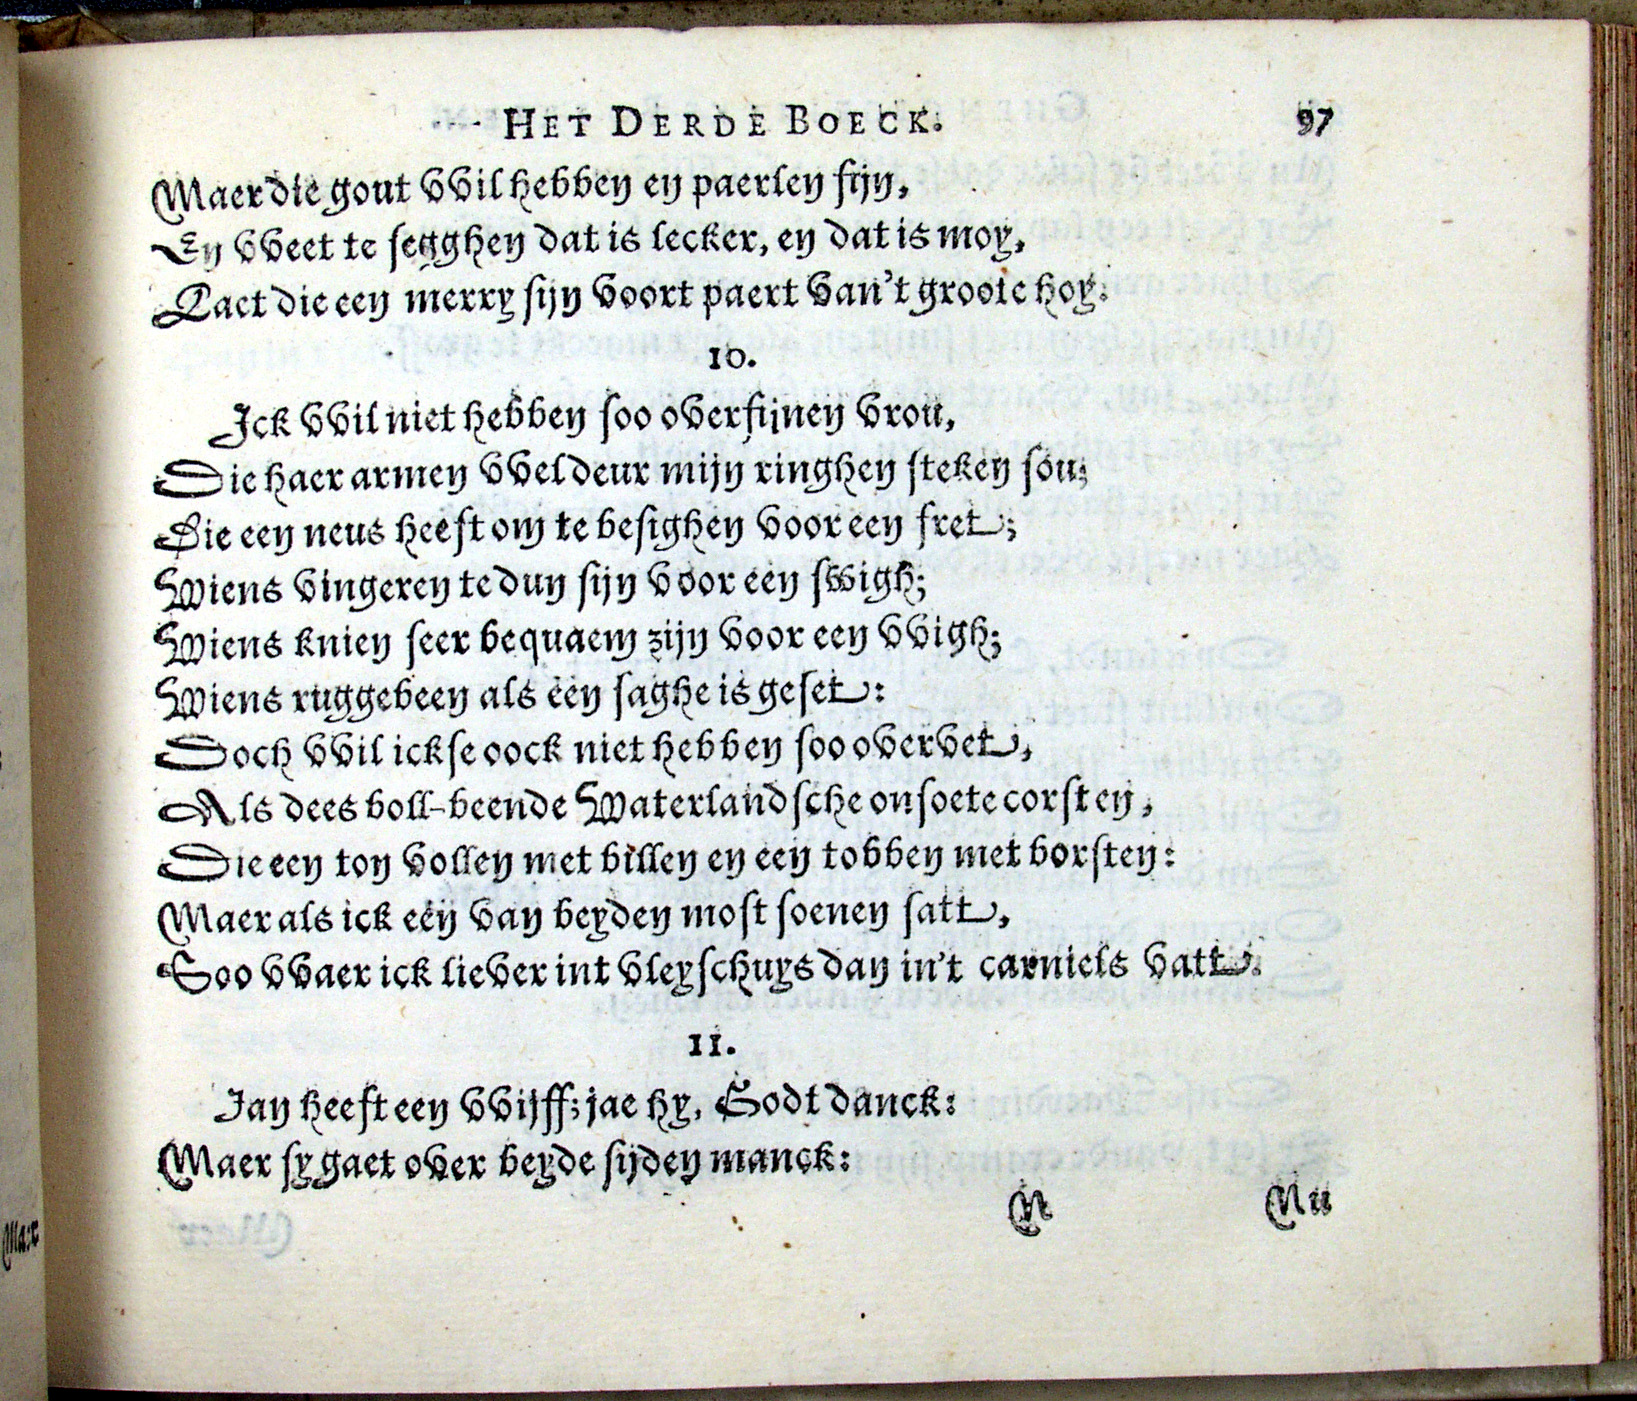 HET DERDE BOECK. 97
Maer die gout vvil hebben en paerlen fijn,
En vveet te segghen dat is lecker, en dat is moy,
Laet die een merry sijn voort paert van't groote hoy.
10.
Ick vvil niet hebben soo overfijnen vrou,
Die haer armen vvel deur mijn ringhen steken sou;
Die een neus heeft om te besighen voor een fret;
Wiens vingeren te dun sijn voor een swigh;
Wiens knien seer bequaem zijn voor een vvigh;
Wiens ruggebeen als een saghe is geset:
Doch vvil ickse oock niet hebben soo overvet,
Als dees boll-beende Waterlandsche onsoete corsten,
Die een ton vollen met billen en een tobben met borsten:
Maer als ick een van beyden most soenen satt,
Soo vvaer ick liever int vleyschuys dan in't carniels vatt.
11.
Jan heeft een vvijff; jae hy, Godt danck:
Maer sy gaet over beyde sijden manck:
N Nu
Maer